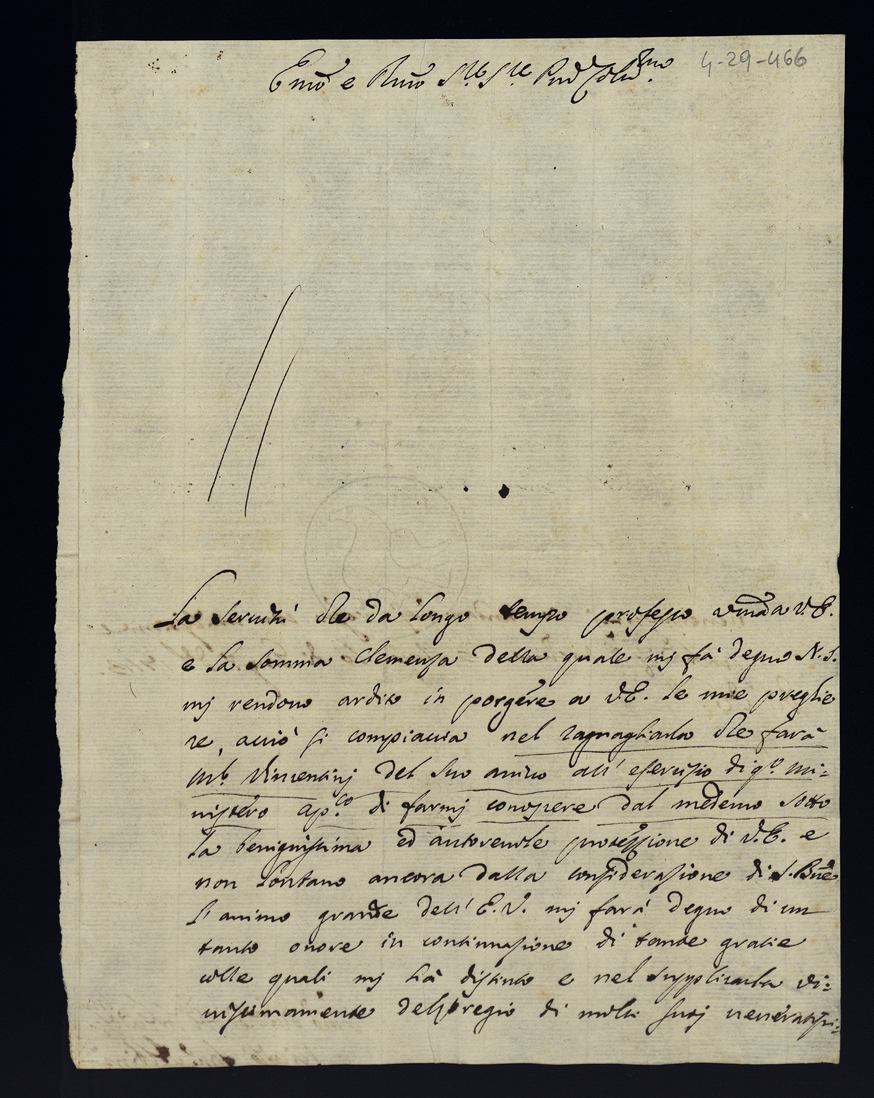 Emõ e Rmõ Sre. Sre. Pnẽ Colmo.
4-29-466
La servitù che da longo tempo professo verso V.E.
e la somma Clemenza della quale mj fà degno N.S.
mj rendono ardito in porgere a V.E. le mie preghie
re, acciò si compiaccia nel ragnagliarla che farà
Vincentinj del suo arrivo all' esercizio di q.o mi=
nistero ap.co di farmj conoscere dal medemo sotto
la benignissima ed autorevole protezzione di V.E. e
non lontano ancora dalla considerazione di S. Bnẽ
L'animo grande dell' E.V. mj farà degno di un
tanto onore in continuazione di tante gratie
colle quali mj hà distinto e nel supplicarla vi=
vissimamente del pregio di molti suoj veneratissi=